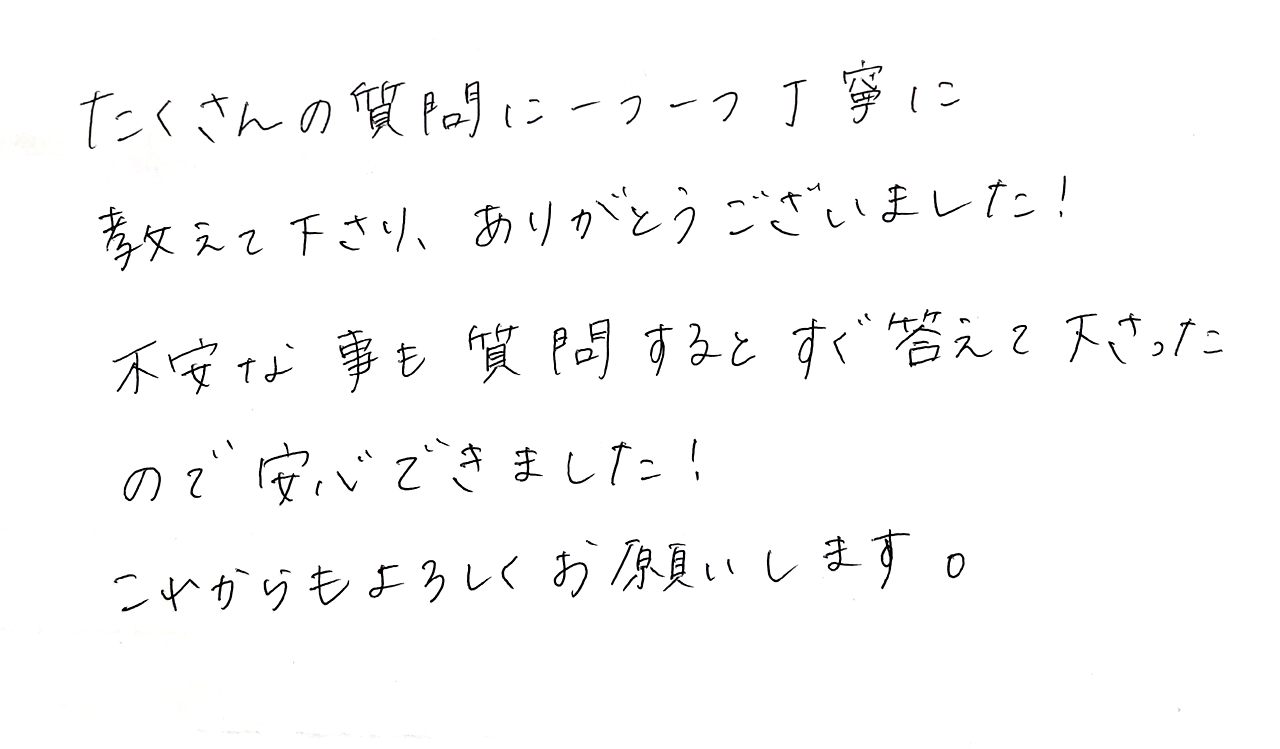 たくさんの質問に一つ一つ丁寧に
教えて下さり、ありがとうございました!
不安な事も質問するとすぐ答えて下さった
ので安心できました!
これからもよろしくお願いします。